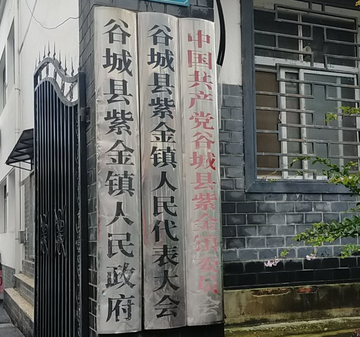 中国共产党谷城县紫金镇委员会
谷城县紫金镇人民代表大会
谷城县紫金镇人民政府